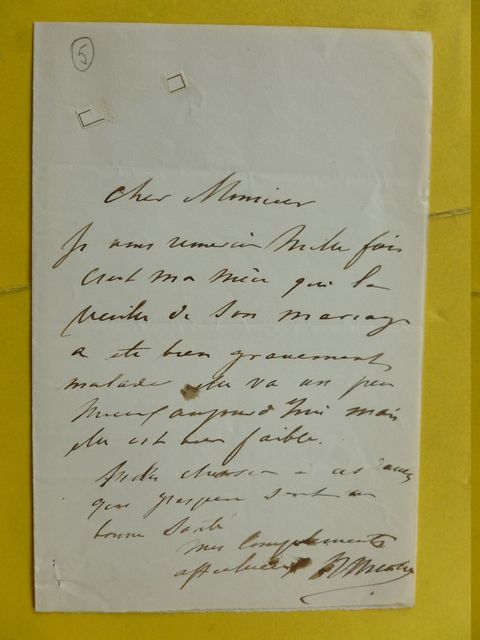 5
Cher Monsieur
Je vous remercie mille fois
c'est ma mère qui la
veille de son mariage
a été bien gravement
malade elle va un peu
mieux aujourd'hui mais
elle est bien faible.
que j'espère sont en
bonne santé
mes compliments
affectueux